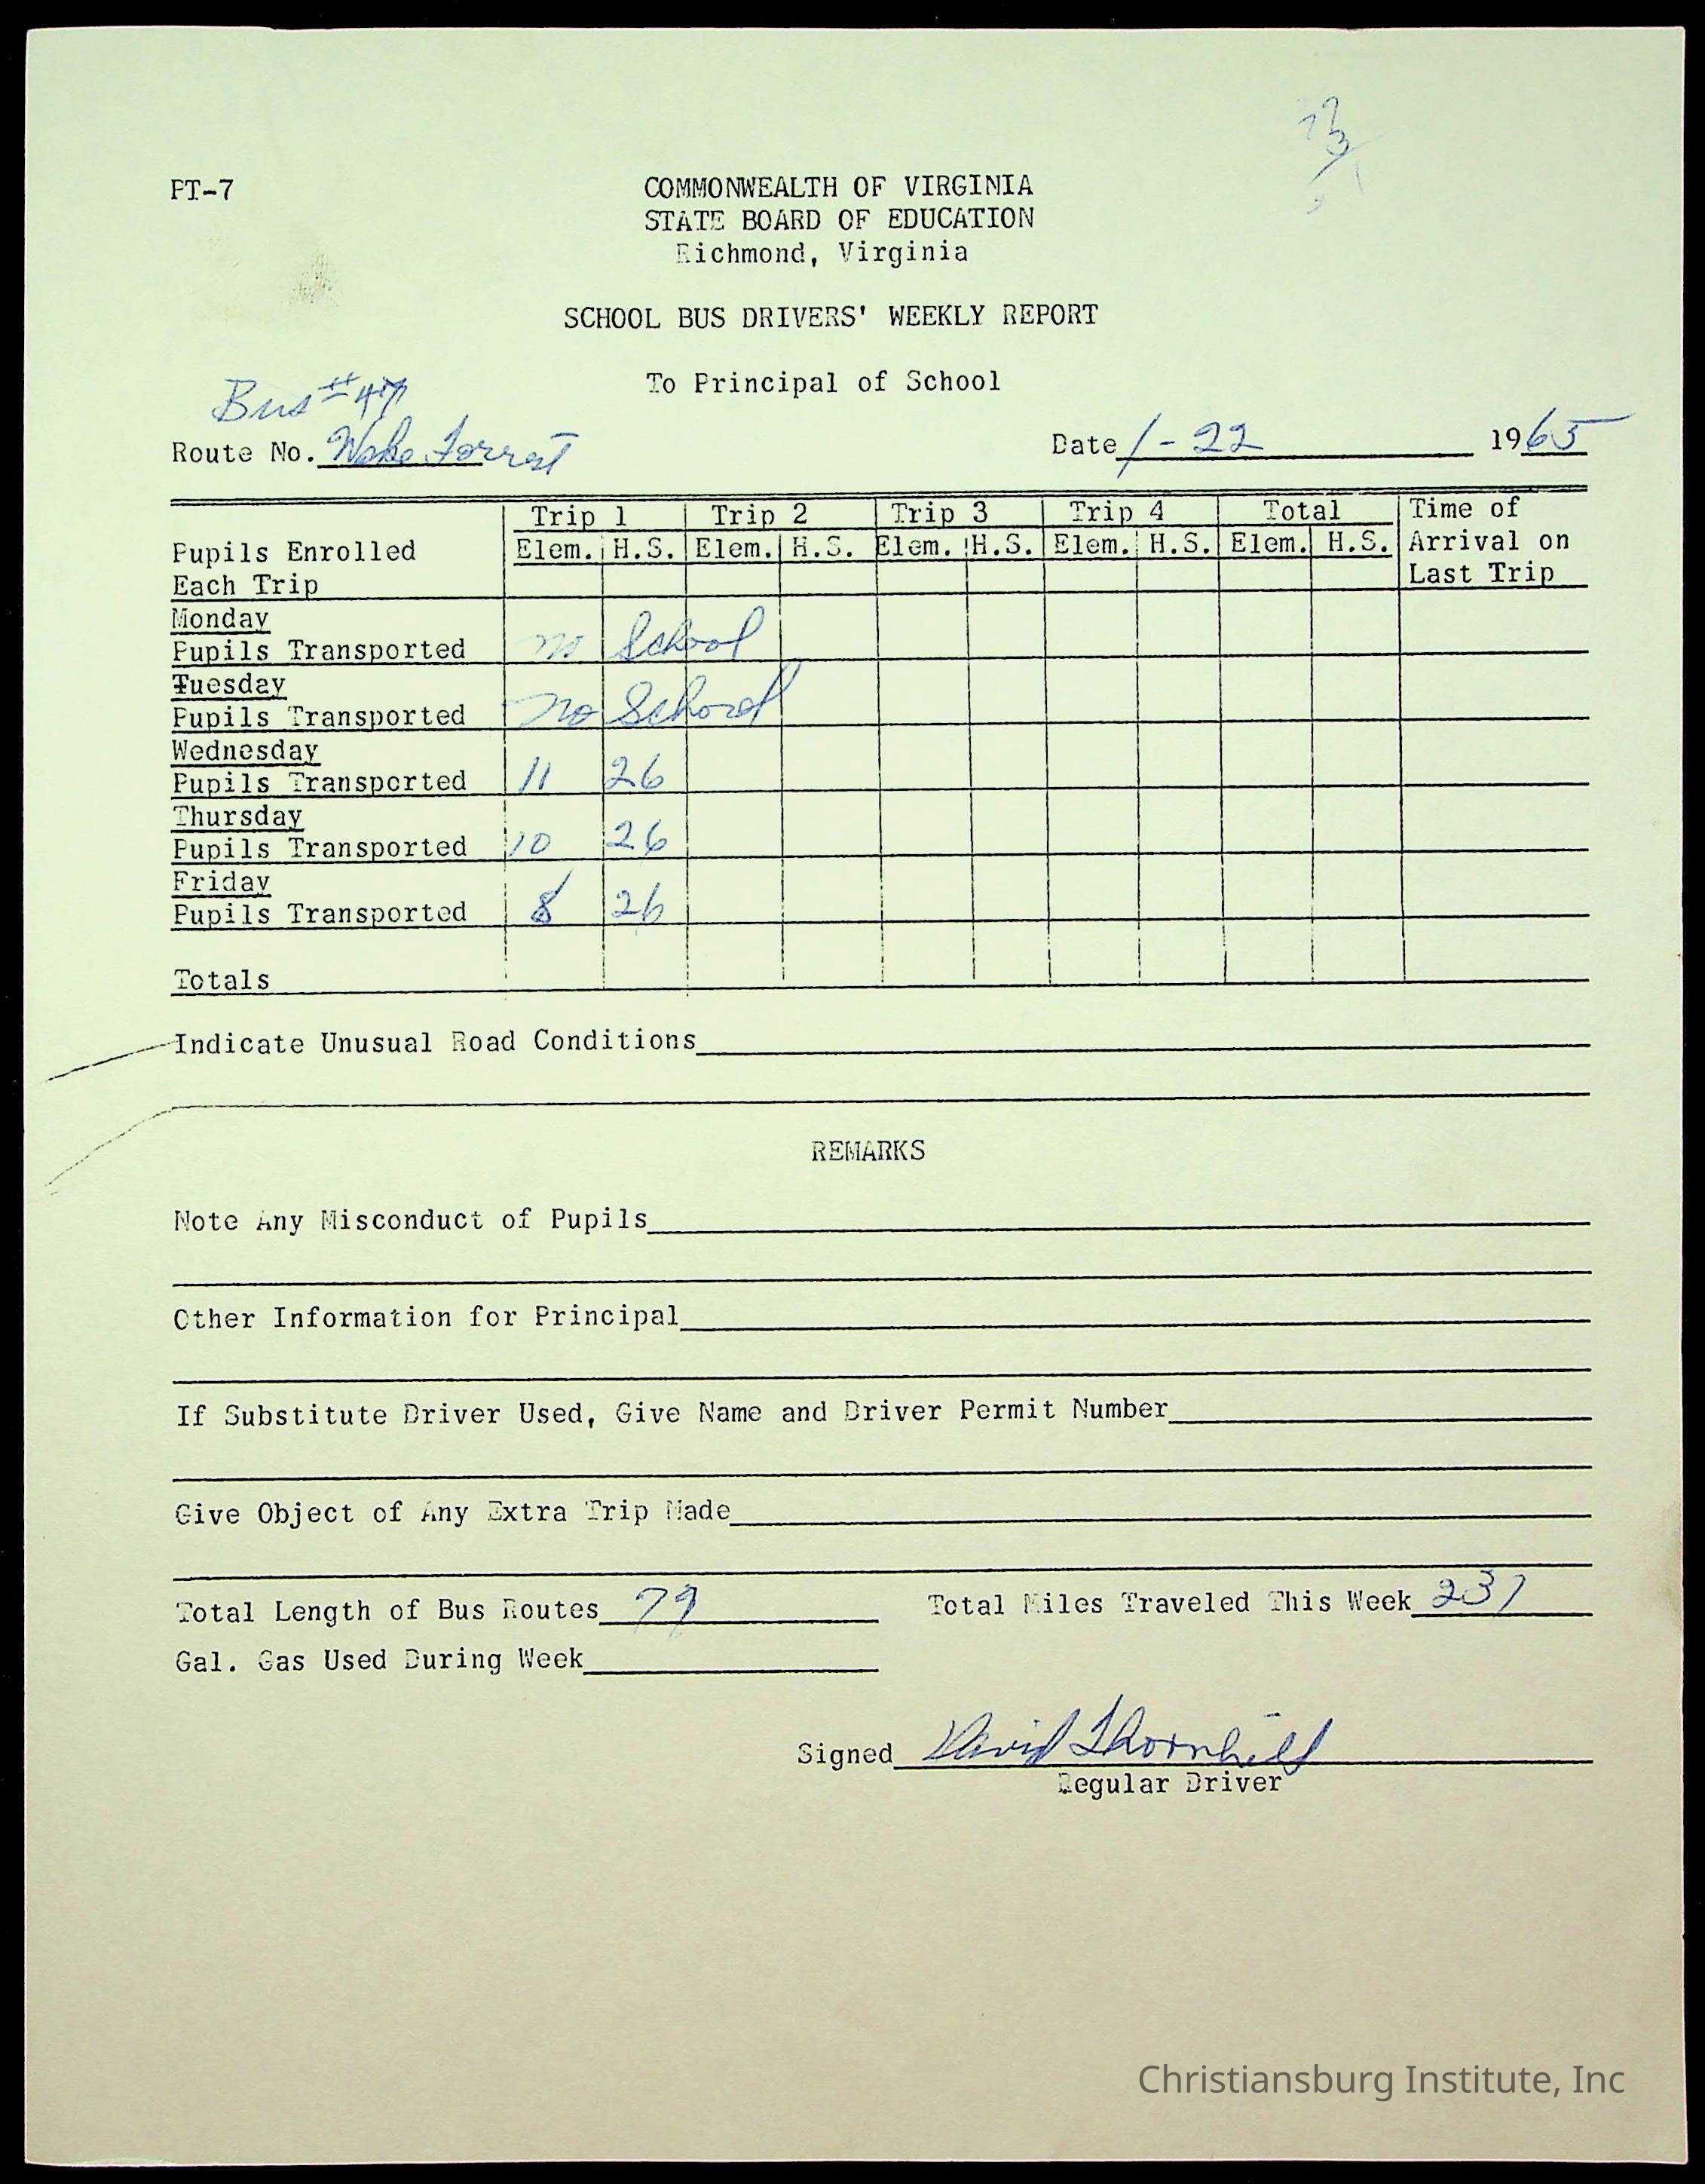 PT-7
COMMONWEALTH OF VIRGINIA
STATE BOARD OF EDUCATION
Richmond, Virginia
SCHOOL BUS DRIVERS' WEEKLY REPORT
To Principal of School
Bus #47
Route No. Wake Forrest Date 1-22 1965
Trip 1 Trip 2 Trip 3 Trip 4 Total Time of
Pupils Enrolled Elem. H.S. Elem. H.S. Elem. H.S. Elem. H.S. Elem. H.S. Arrival on
Each Trip Last Trip
Monday
Pupils Transported no School
Tuesday
Pupils Transported no School
Wednesday
Pupils Transported 11 26
Thursday
Pupils Transported 10 26
Friday
Pupils Transported 8 26
Totals
Indicate Unusual Road Conditions
REMARKS
Note Any Misconduct of Pupils
Other Information for Principal
If Substitute Driver Used, Give Name and Driver Permit Number
Give Object of Any Extra Trip Made
Total Length of Bus Routes 79 Total Miles Traveled This Week 237
Gal. Gas Used During Week
Signed David Thornhill
Regular Driver
Christiansburg Institute, Inc